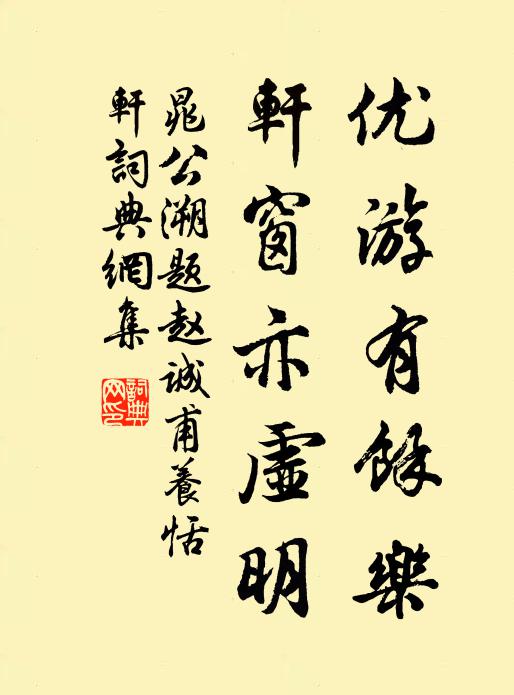 优游有餘樂
軒窗亦虛明
晁公溯题赵诚甫養恬
軒詞典網集
詞典网印